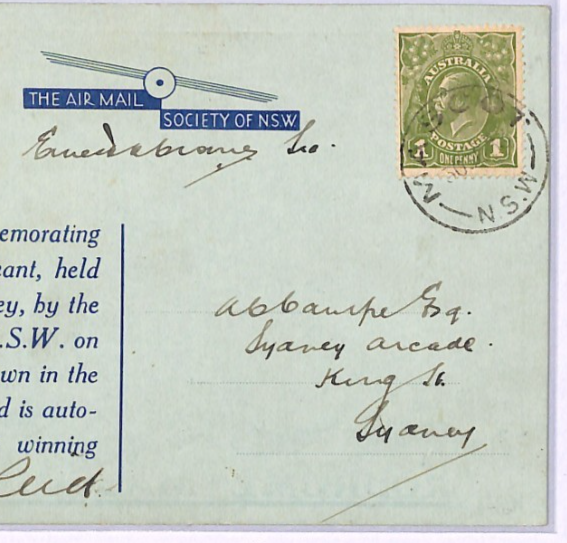 THE AIR MAIL
SOCIETY OF N.S.W.
Sec.
AUSTRALIA
POSTAGE
1 ONE PENNY 1
MASCOT
N.S.W
emorating
ant, held
ey, by the
.S.W. on
wn in the
d is auto-
winning
Esq.
Sydney Arcade.
King St.
Sydney